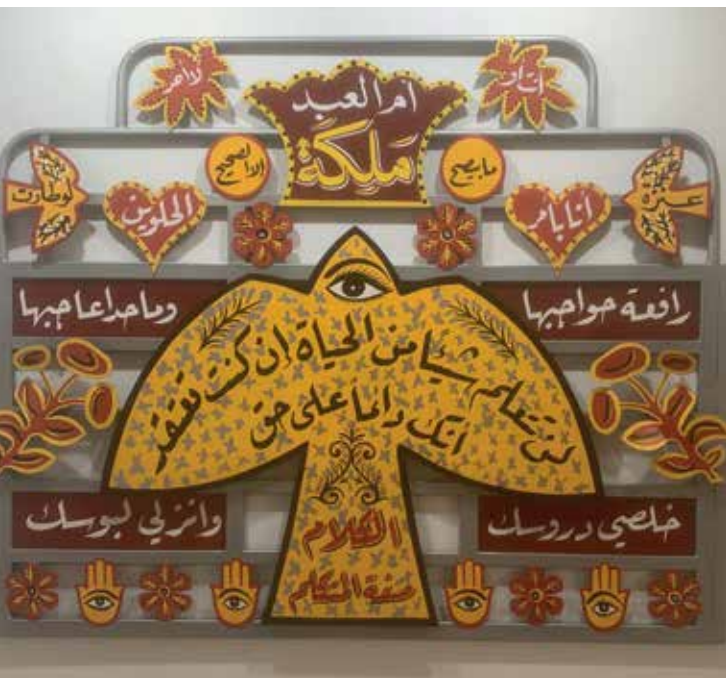 انت او
لا احد
ام العبد
ملكة
ما يصح
الا الصحيح
عنزة
لو طارت
انا بام
الحلوين
رافعة حواجبها
وما حدا عاجبها
لن تتعلم شيئا من الحياة ان كنت تعتقد
انك دائما على حق
خلصي دروسك
وانزلي لبوسك
الكلام
صفة المتكلم